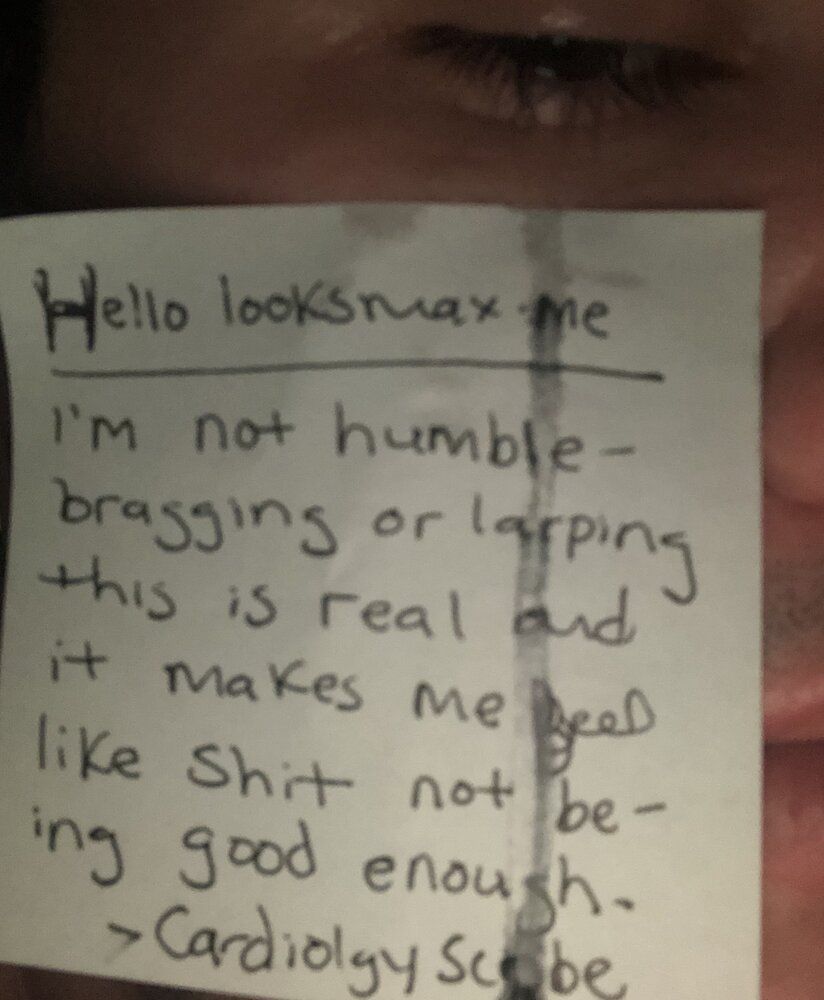 Hello looksmax me
I'm not humble-
bragging or larping
this is real and
it makes me feel
like shit not be-
ing good enough.
> Cardiolgy Scribe